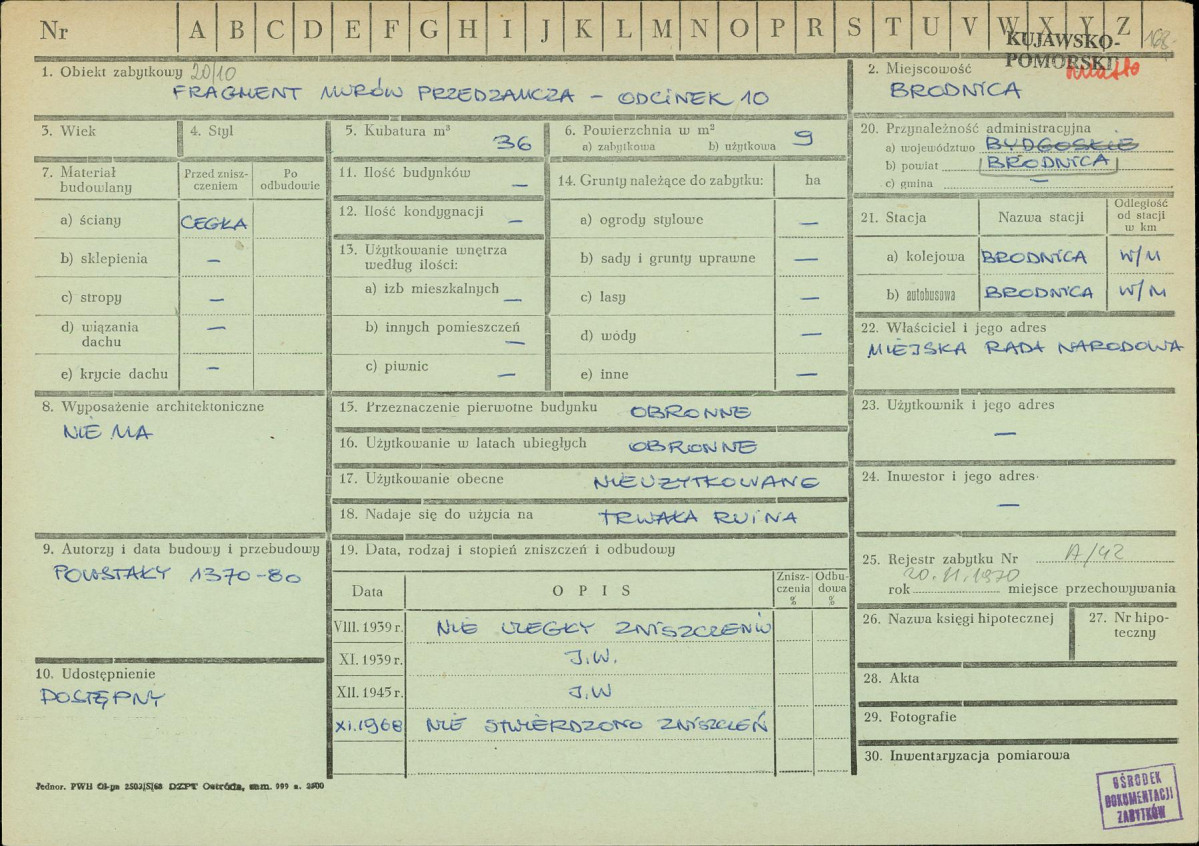 Nr A B C D E F G H I J K L M N O P R S T U V W X Y Z 168
KUJAWSKO-
POMORSKI
miasto
1. Obiekt zabytkowy 20/10
FRAGMENT MURÓW PRZEDZAMCZA – ODCINEK 10
2. Miejscowość
BRODNICA
3. Wiek
4. Styl
5. Kubatura m³
36
6. Powierzchnia w m²
a) zabytkowa b) użytkowa 9
20. Przynależność administracyjna
a) województwo BYDGOSKIE
b) powiat BRODNICA
c) gmina –
7. Materiał budowlany
Przed zniszczeniem
Po odbudowie
a) ściany CEGŁA
b) sklepienia –
c) stropy –
d) wiązania dachu –
e) krycie dachu –
11. Ilość budynków –
12. Ilość kondygnacji –
13. Użytkowanie wnętrza
według ilości:
a) izb mieszkalnych –
b) innych pomieszczeń –
c) piwnic –
14. Grunty należące do zabytku: ha
a) ogrody stylowe –
b) sady i grunty uprawne –
c) lasy –
d) wody –
e) inne –
21. Stacja
Nazwa stacji
Odległość od stacji w km
a) kolejowa BRODNICA W/M
b) autobusowa BRODNICA W/M
22. Właściciel i jego adres
MIEJSKA RADA NARODOWA
8. Wyposażenie architektoniczne
NIE MA
15. Przeznaczenie pierwotne budynku OBRONNE
16. Użytkowanie w latach ubiegłych OBRONNE
17. Użytkowanie obecne NIEUŻYTKOWANE
18. Nadaje się do użycia na TRWAŁA RUINA
23. Użytkownik i jego adres
–
24. Inwestor i jego adres
–
9. Autorzy i data budowy i przebudowy
POWSTAŁY 1370-80
19. Data, rodzaj i stopień zniszczeń i odbudowy
Data
OPIS
Zniszczenia %
Odbudowa %
VIII. 1939 r. NIE ULEGŁY ZNISZCZENIU
XI. 1939 r. J.W.
XII. 1945 r. J.W
XI.1968 NIE STWIERDZONO ZNISZCZEŃ
25. Rejestr zabytku Nr A/42
20.11.1970
rok miejsce przechowywania
26. Nazwa księgi hipotecznej
27. Nr hipoteczny
28. Akta
29. Fotografie
30. Inwentaryzacja pomiarowa
10. Udostępnienie
DOSTĘPNY
OŚRODEK
DOKUMENTACJI
ZABYTKÓW